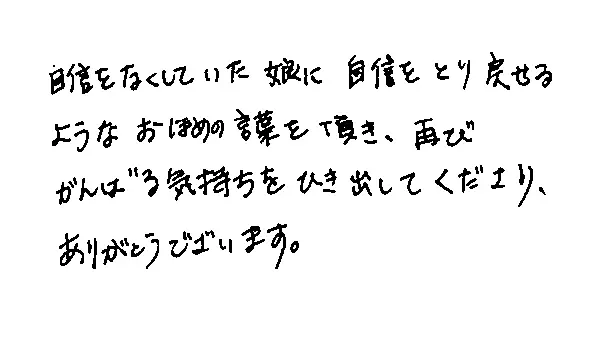 自信をなくしていた娘に 自信をとり戻せる
ような おほめの言葉を頂き、再び
がんばる気持ちをひき出してくださり、
ありがとうございます。